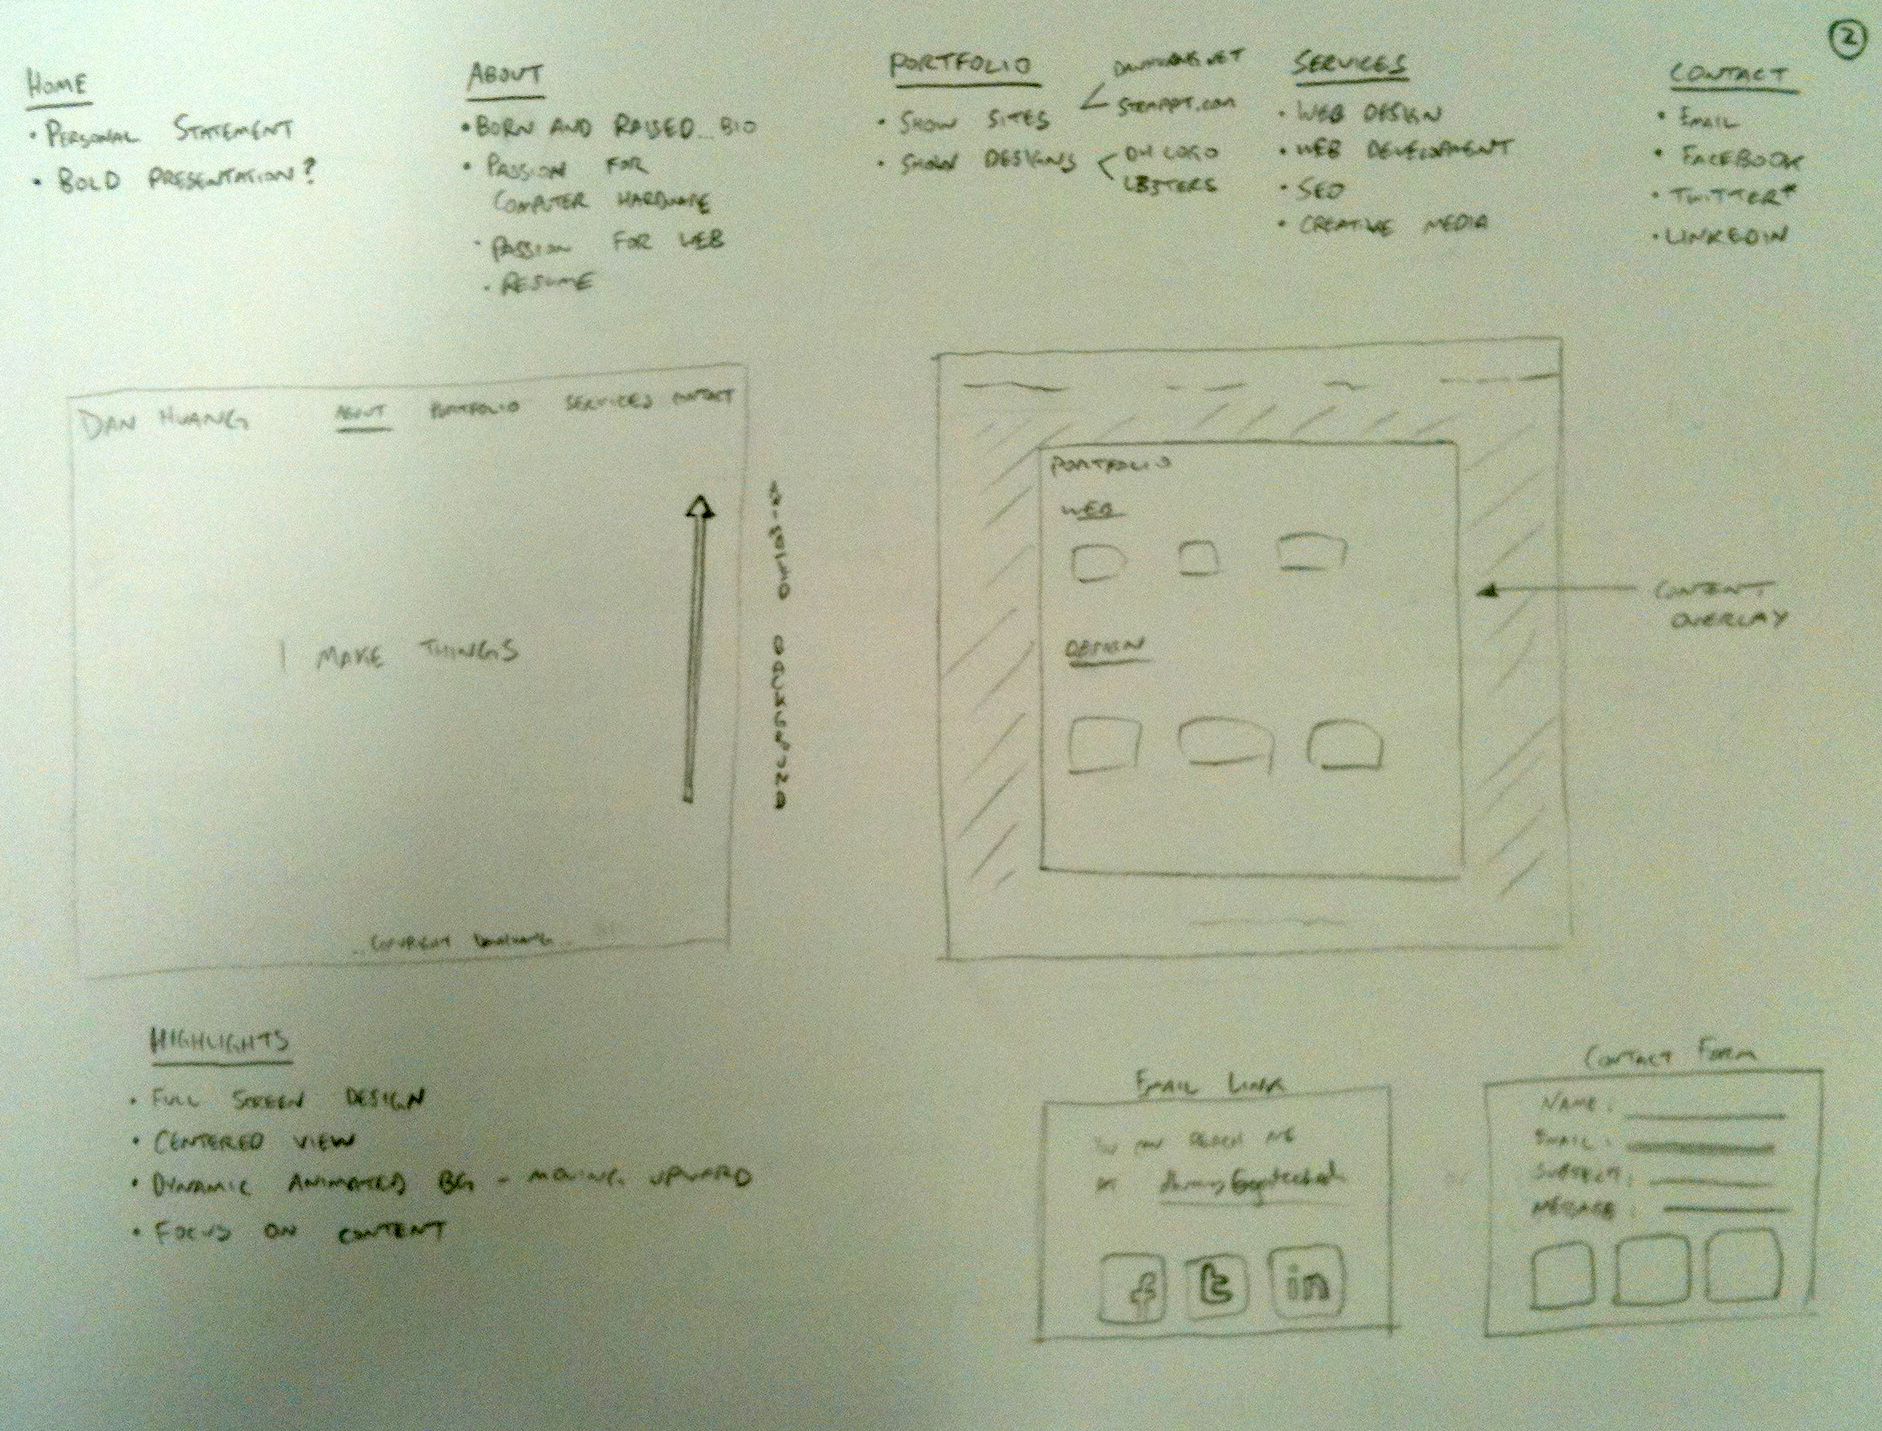 2
HOME
• PERSONAL STATEMENT
• BOLD PRESENTATION?
ABOUT
• BORN AND RAISED... BIO
• PASSION FOR
COMPUTER HARDWARE
• PASSION FOR WEB
• RESUME
PORTFOLIO
• SHOW SITES
• SHOW DESIGNS
DANHUANG.NET
STRAPPT.COM
DH LOGO
SERVICES
• WEB DESIGN
• WEB DEVELOPMENT
• SEO
• CREATIVE MEDIA
CONTACT
• EMAIL
• FACEBOOK
• TWITTER*
• LINKEDIN
DAN HUANG ABOUT PORTFOLIO SERVICES CONTACT
I MAKE THINGS
BACKGROUND
...COPYRIGHT DANHUANG...
PORTFOLIO
WEB
DESIGN
CONTENT
OVERLAY
HIGHLIGHTS
• FULL SCREEN DESIGN
• CENTERED VIEW
• DYNAMIC ANIMATED BG - MOVING UPWARD
• FOCUS ON CONTENT
EMAIL LINK
REACH ME
AT
f t in
CONTACT FORM
NAME:
EMAIL:
SUBJECT:
MESSAGE: